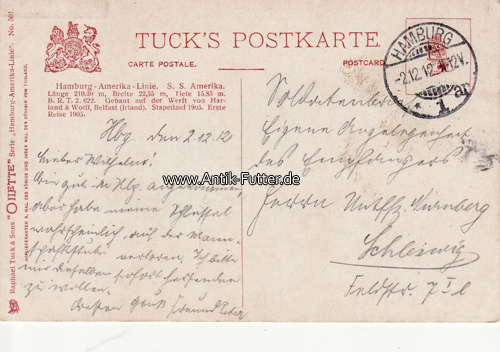 TUCK'S POSTKARTE.
CARTE POSTALE.
POSTCARD
HAMBURG
-2.12.12.
* 1 ar
No. 501
Raphael Tuck & Sons "OILETTE" Serie „Hamburg-Amerika-Linie".
Hamburg-Amerika-Linie. S. S. Amerika.
Länge 210,30 m, Breite 22,55 m, Tiefe 15,85 m.
B. R. T. 2.622. Gebaut auf der Werft von Har-
land & Wolff, Belfast (Irland). Stapellauf 1905. Erste
Reise 1905.
Hbg, den 2.12.12
Lieber Wilhelm!
Bin gut in Hbg. angekommen,
aber habe meine Schlüssel
wahrscheinlich auf der Mann-
schaftsstube verloren. Ich bitte
mir dieselben sofort
zu wollen.
Besten Gruß Freund
www.Antik-Futter.de
Soldatenbrief
Eigene Angelegenheit
des Empfängers
Herrn Untffz.
Schleswig
Feldstr. 7